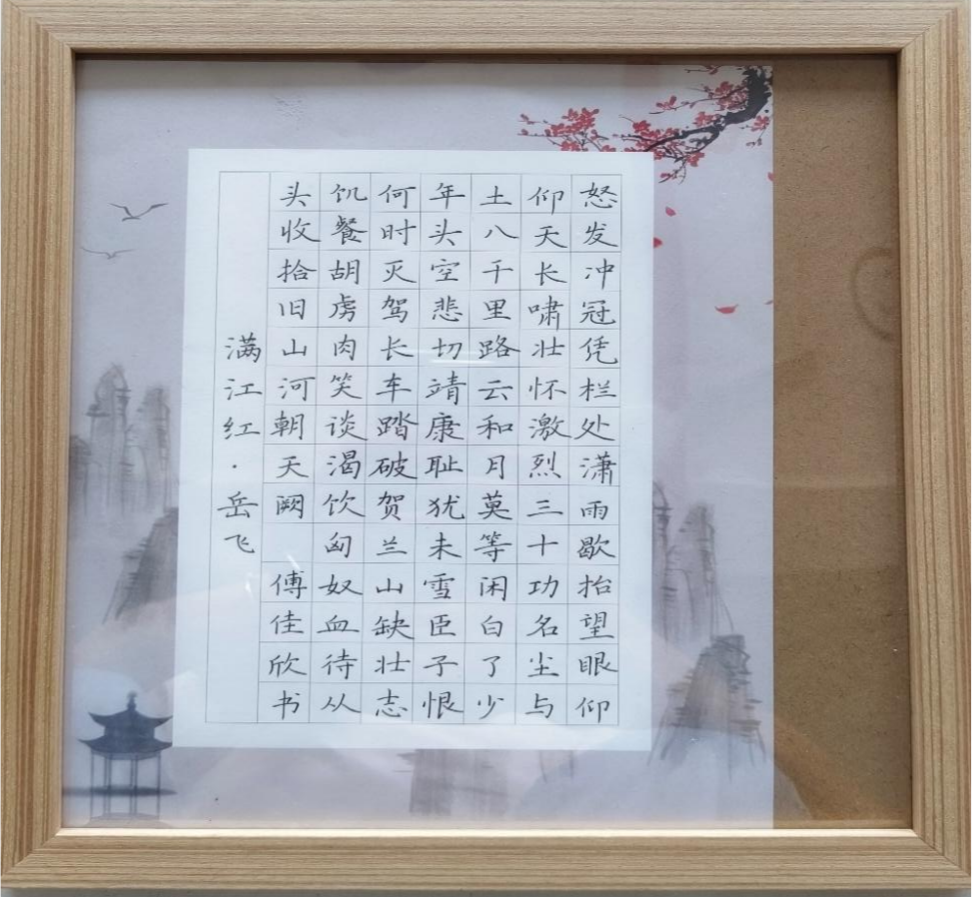 怒发冲冠凭栏处潇雨歇抬望眼仰
仰天长啸壮怀激烈三十功名尘与
土八千里路云和月莫等闲白了少
年头空悲切靖康耻犹未雪臣子恨
何时灭驾长车踏破贺兰山缺壮志
饥餐胡虏肉笑谈渴饮匈奴血待从
头收拾旧山河朝天阙 傅佳欣书
满江红·岳飞